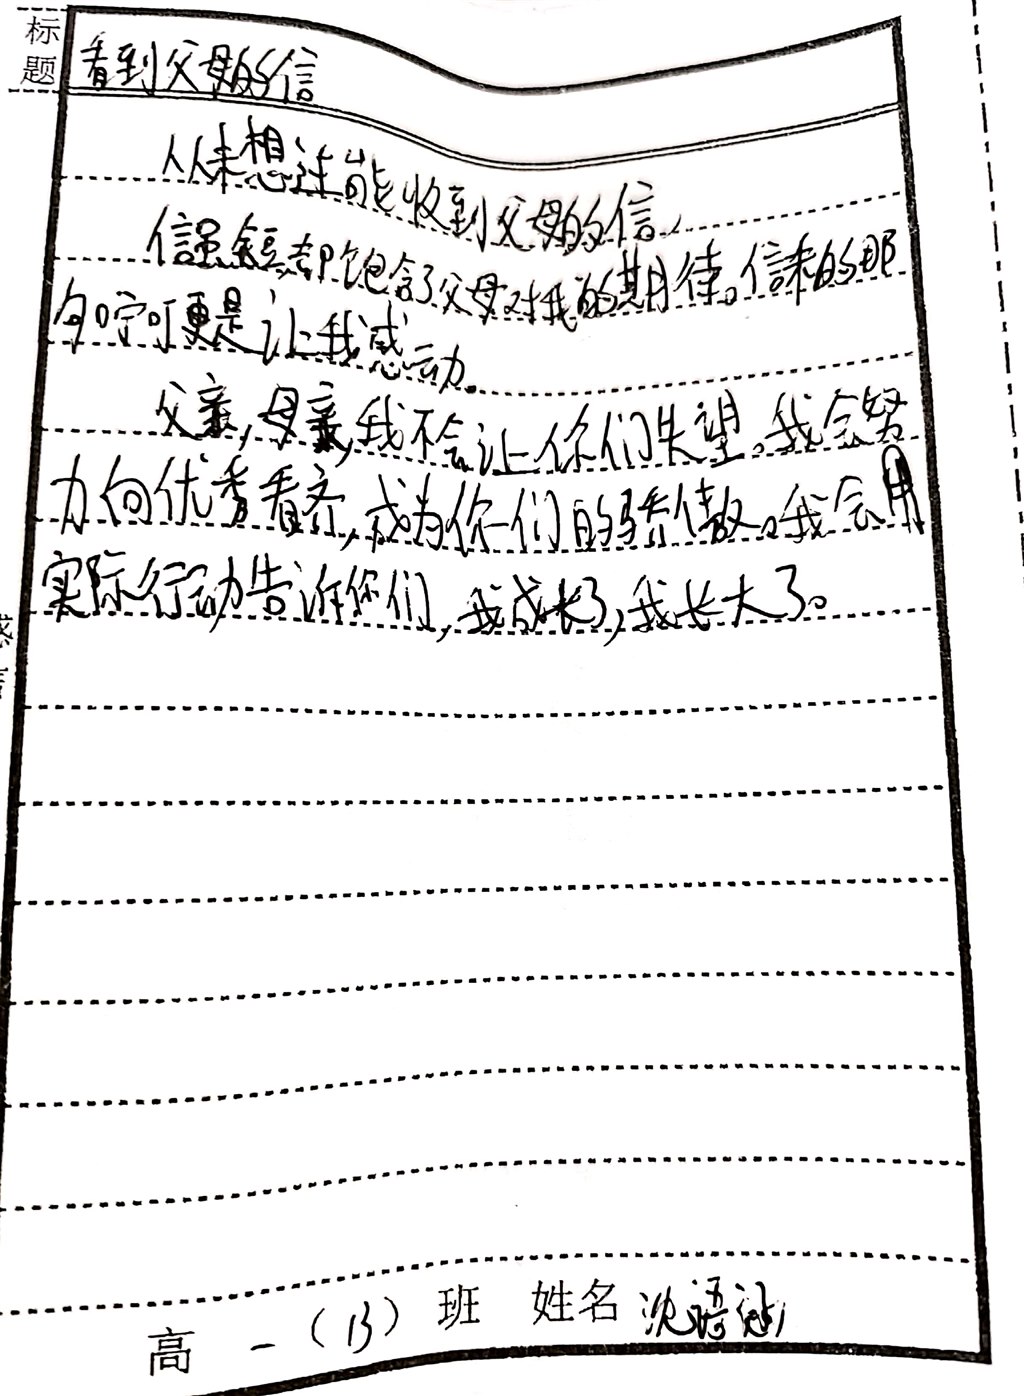 标题
看到父母的信
从未想过能收到父母的信,
信虽短,却饱含了父母对我的期待。信末的那
句叮咛更是让我感动。
父亲,母亲,我不会让你们失望。我会努
力向优秀看齐,成为你们的骄傲。我会用
实际行动告诉你们,我成长了,我长大了。
高一(13)班 姓名 沈语